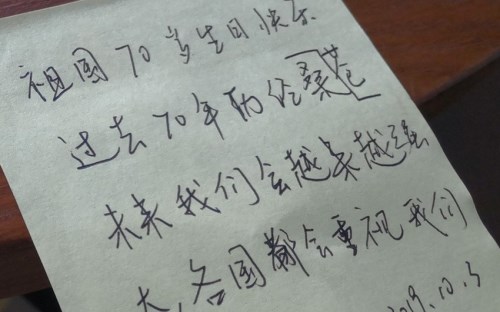 祖国70岁生日快乐
过去70年历经桑苍
未来我们会越来越强
大,各国都会重视我们
2019.10.3